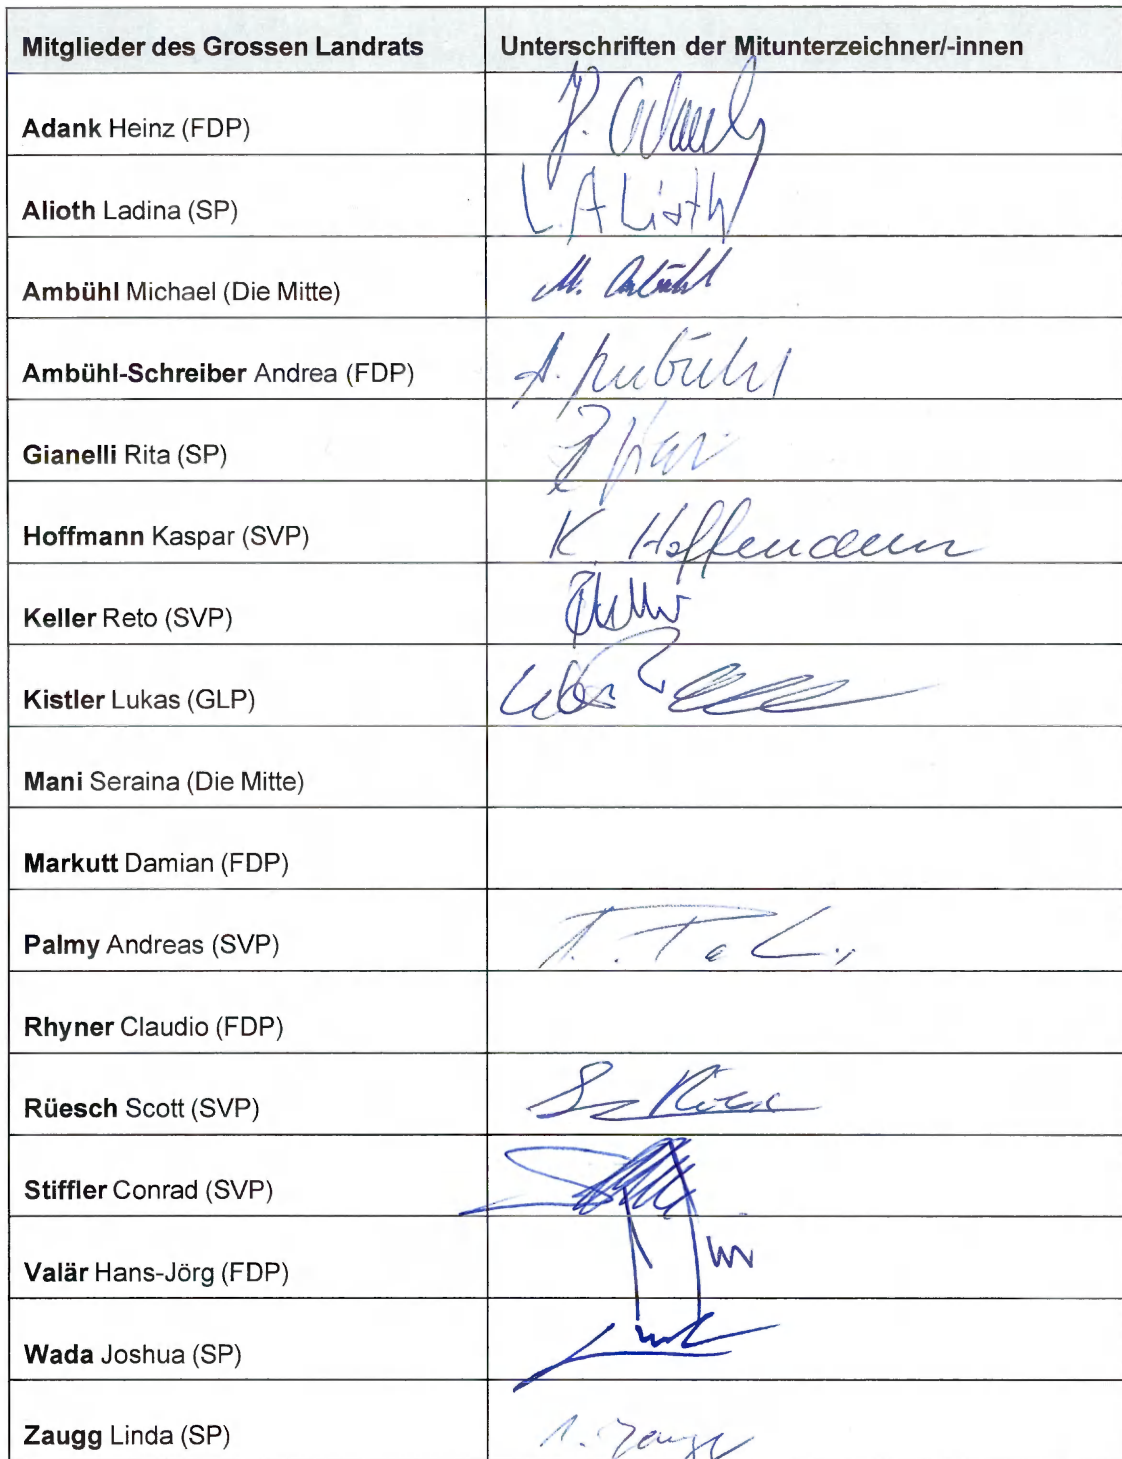 Mitglieder des Grossen Landrats Unterschriften der Mitunterzeichner/-innen
Adank Heinz (FDP)
Alioth Ladina (SP) L. Alioth
Ambühl Michael (Die Mitte) M. Ambühl
Ambühl-Schreiber Andrea (FDP) A. Ambühl
Gianelli Rita (SP)
Hoffmann Kaspar (SVP) K. Hoffmann
Keller Reto (SVP)
Kistler Lukas (GLP)
Mani Seraina (Die Mitte)
Markutt Damian (FDP)
Palmy Andreas (SVP)
Rhyner Claudio (FDP)
Rüesch Scott (SVP)
Stiffler Conrad (SVP)
Valär Hans-Jörg (FDP)
Wada Joshua (SP)
Zaugg Linda (SP)